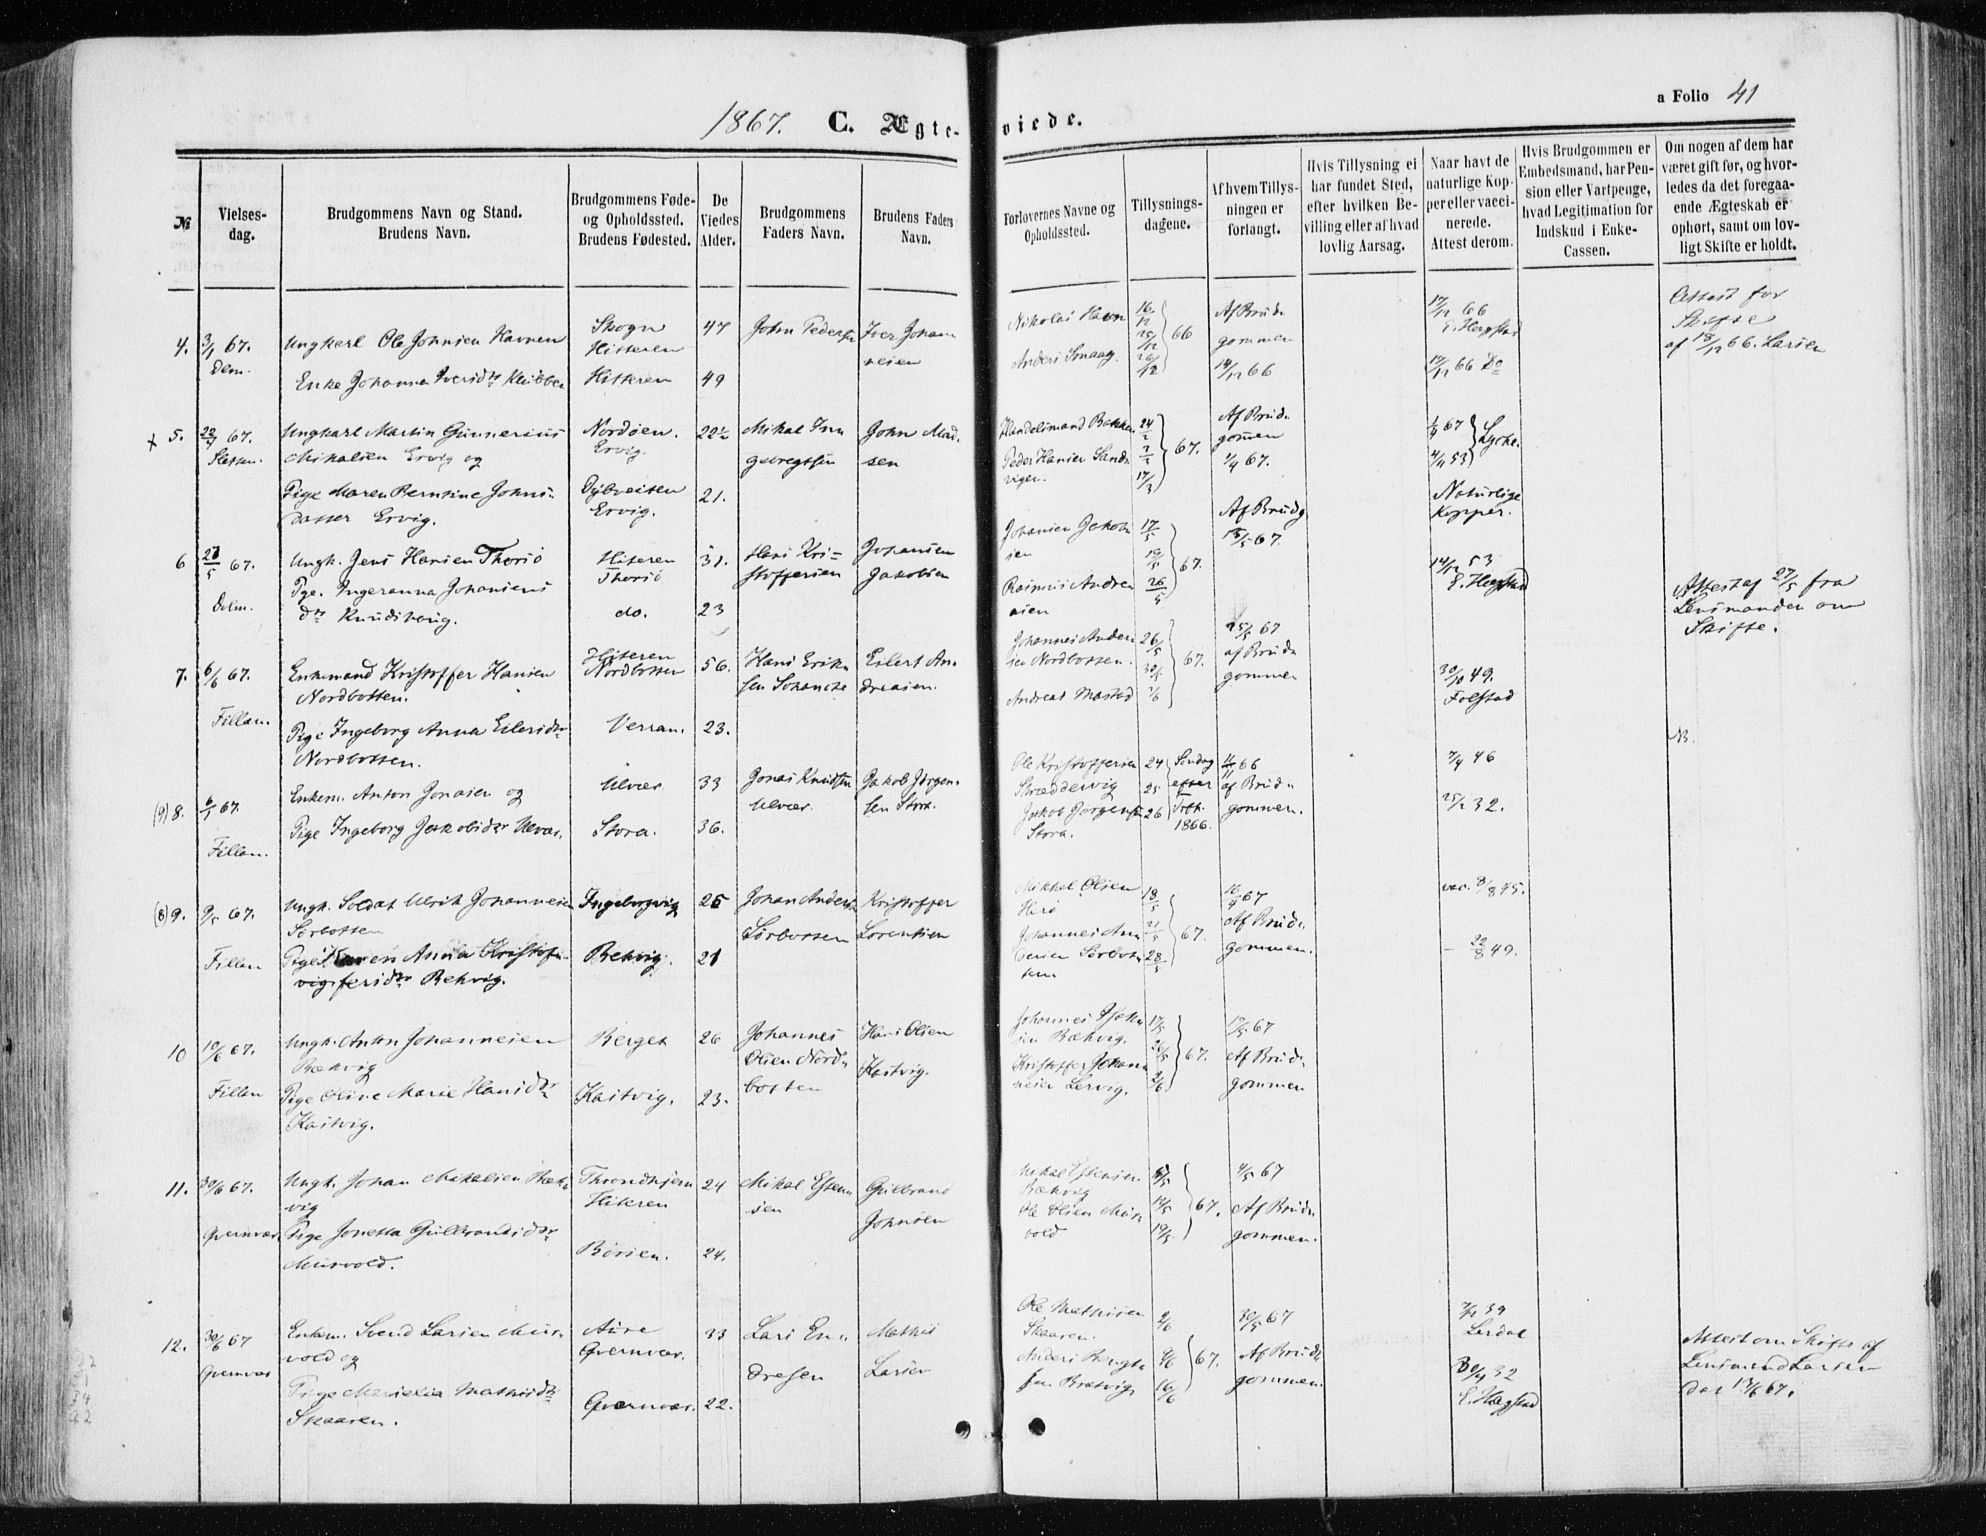 1867. C. Ægteviede.
a Folio 41
№
Vielsesdag.
Brudgommens Navn og Stand.
Brudens Navn.
Brudgommens Føde-
og Opholdssted.
Brudens Fødested.
De
Viedes
Alder.
Brudgommens
Faders Navn.
Brudens Faders
Navn.
Forlovernes Navne og
Opholdssted.
Tillysnings-
dagene.
Af hvem Tillys-
ningen er
forlangt.
Hvis Tillysning ei
har fundet Sted,
efter hvilken Be-
villing eller af hvad
lovlig Aarsag.
Naar havt de
naturlige Kop-
per eller vacci-
nerede.
Attest derom.
Hvis Brudgommen er
Embedsmand, har Pen-
sion eller Vartpenge,
hvad Legitimation for
Indskud i Enke-
Cassen.
Om nogen af dem har
været gift før, og hvor-
ledes da det foregaa-
ende Ægteskab er
ophørt, samt om lov-
ligt Skifte er holdt.
4. 3/1 67.
Dolm.
Ungkarl Ole Johnsen Havnen
Enke Johanna Iversdtr
Skogn
Hitteren
Hitteren
47
49
John Pedersen
Iver Johan-
nesen
Nikolai Havn
Anders Smaag.
16/12
25/12
26/12
66
Af Brud-
gommen
14/12 66
17/12 66
E. Hegstad
17/12 66 Do
Attest for
Skifte
af 18/12 66. Larsen
x 5. 22/4 67.
Sletten.
Ungkarl Martin Gunnerius
Mikalsen Ervig og
Pige Maren Berntine Johns-
datter Ervig.
Nordøen.
Ervig.
Ervig.
22½
21.
Mikal In-
gebregtsen
John Mad-
sen
Handelsmand Bakken
Peder Hansen Sand-
vigen.
24/2
3/3
17/3
67.
Af Brud-
gommen
1/4 67.
1/4 67
4/11 53
Lycke.
Naturlige
Kopper.
6 27/5 67.
Dolm.
Ungk. Jens Hansen Thorsö
Pge. Ingeranna Johansens
dtr Knudshaug.
Hiteren
Thorsö
do.
31.
23
Hans Kri-
stoffersen
Johansen
Jakobsen
Johansen Jakob-
sen
Rasmus Andrea
asen
17/5
19/5
26/5
67.
Af Brudg
13/5 67.
14/12 53
E. Hegstad
Attest af 27/5 fra
Lensmanden om
Skifte.
7. 6/6 67.
Fillan.
Enkemand Kristoffer Hansen
Nordbotten.
Pige Ingeborg Anna Eilersdtr
Nordbotten.
Hiteren
Nordbotten
Verran.
56.
23.
Hans Erik-
sen
Eilert An-
dreasen.
Johannes Ander
sen Nordbotten.
Andreas Mastad
26/5
30/5
2/6
67.
25/5 67
af Brud-
gommen
30/10 49.
Folstad
NB.
(9) 8. 6/1 67.
Fillan.
Enkem. Anton Jonasen og
Pige Ingeborg Jakobsdtr Ulvær.
Ulvær
Stora.
33
36.
Jonas Knudsen
Ulvær.
Jakob Jørgen-
sen Stora.
Ole Kristoffersen
Skræddervig
Jakob Jørgensen
Stora.
24
25
26
Søndag
efter
Trth.
1866.
11/11 66
af Brud-
gommen.
7/4 46
25/2 32.
(8) 9. 9/5 67.
Fillan
Ungk. Soldat Ulrik Johannesen
Sörbotten
Anna Kristof-
fersdtr Bekvig.
Ingeborgvig
Bekvig.
25
21
Johan Anders
Sörbotten
Kristoffer
Lorentsen
Mikkel Olsen
Herö
Johannes An-
dersen Sörbot-
ten
18/5
21/5
28/5
67.
16/4 67
Af Brud-
gommen.
vac. 8/8 45.
— 22/8 49.
10 10/6 67.
Fillan
Ungk. Anton Johannesen
Bækvig
Pige Oline Marie Hansdtr
Kaitvig.
Berget
Kaitvig.
26
23.
Johannes
Olsen Nord-
botten
Hans Olsen
Kaitvig.
Johannes Isak-
sen Bækvig.
Kristoffer Johan-
nesen Lervig.
17/5
26/5
2/6
67.
17/5 67
Af Brud-
gommen
11. 30/6 67.
Qvernvær
Ungk. Johan Mikalsen Bæk-
vig
Pige Jonetta Gulbrandsdtr
Murvold.
Throndhjem
Hiteren
Börsen.
24
24.
Mikal Esten-
sen
Gulbrand
Johnsen
Mikal Estensen
Bækvig
Ole Olsen Mur-
vold
5/5
12/5
19/5
67.
4/5 67
Af Brud-
gommen.
12. 30/6 67
Qvernvær
Enkem. Svend Larsen Mur-
vold og
Pige Mathisdtr
Skaaren.
Aure
Qvernvær.
Qvernvær.
33
22.
Lars En-
dresen
Mathis
Larsen
Ole Mathisen
Skaaren.
Anders Bengt-
sen Bratvig
2/6
9/6
16/6
67.
30/5 67
Af Brud-
gommen.
7/12 39
Lerdal
30/4 32
E. Hægstad
Attest om Skifte af
Lensmand Larsen
dat 13/6 67.